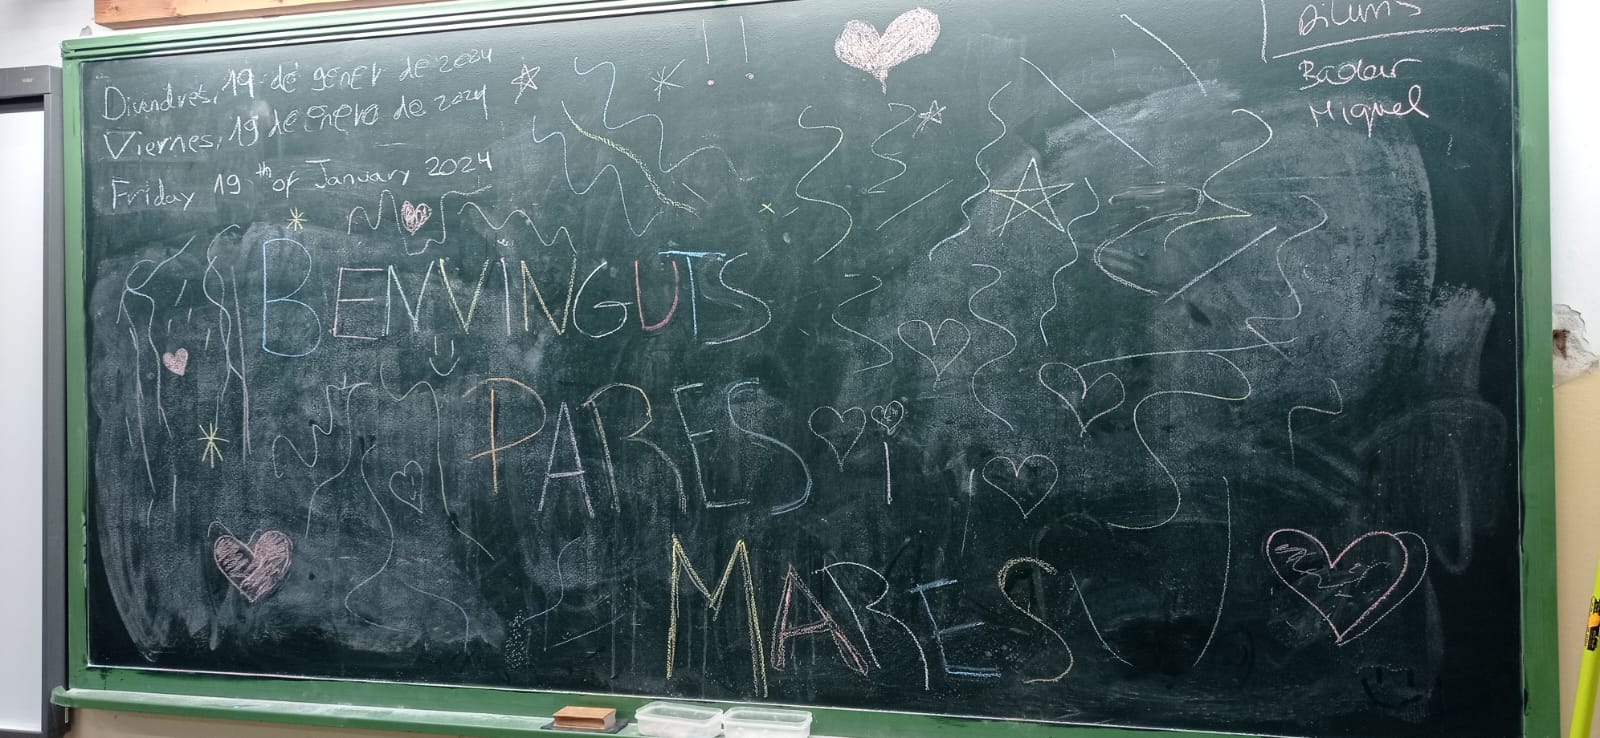 Divendres, 19 de gener de 2024
Viernes, 19 de enero de 2024
Friday 19th of January 2024
!!
BENVINGUTS
PARES i
MARES
Dilluns
Bader
Miquel